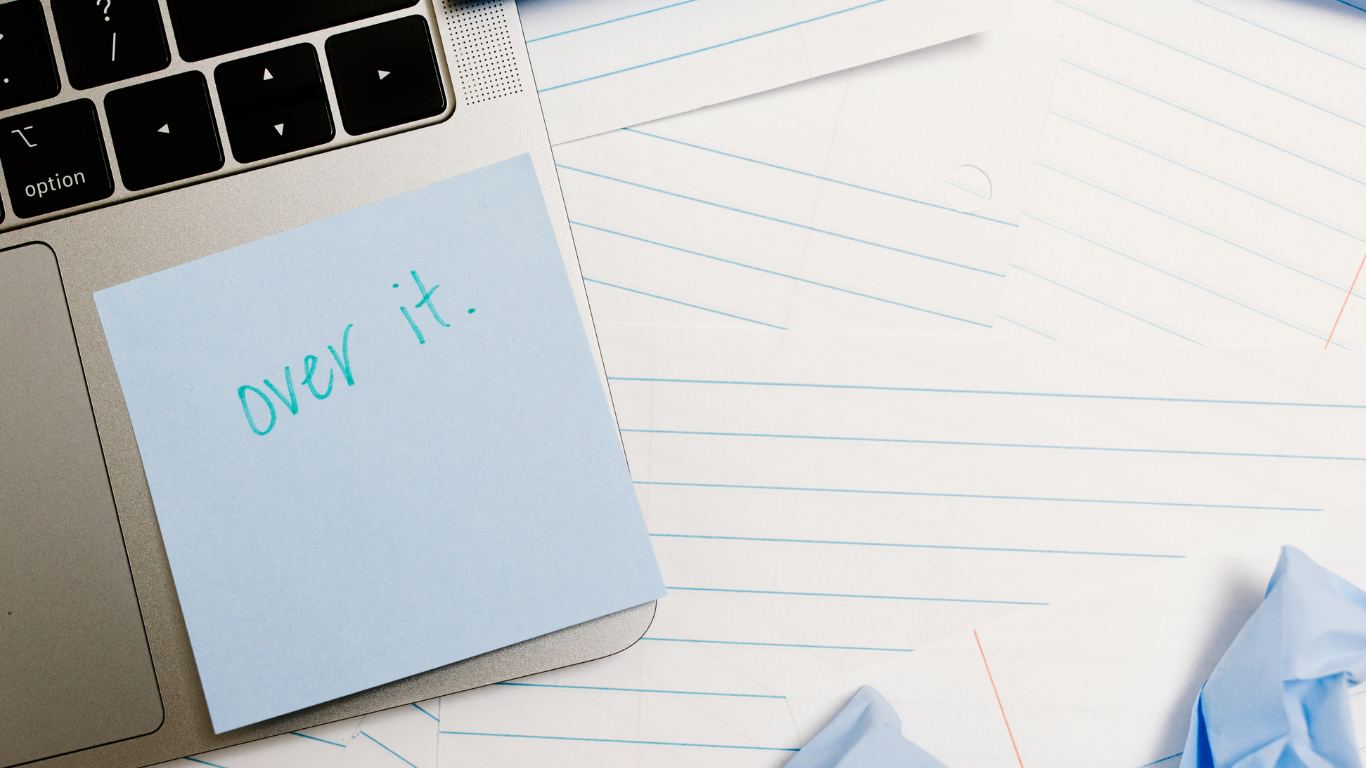 ?
/
option
over it.